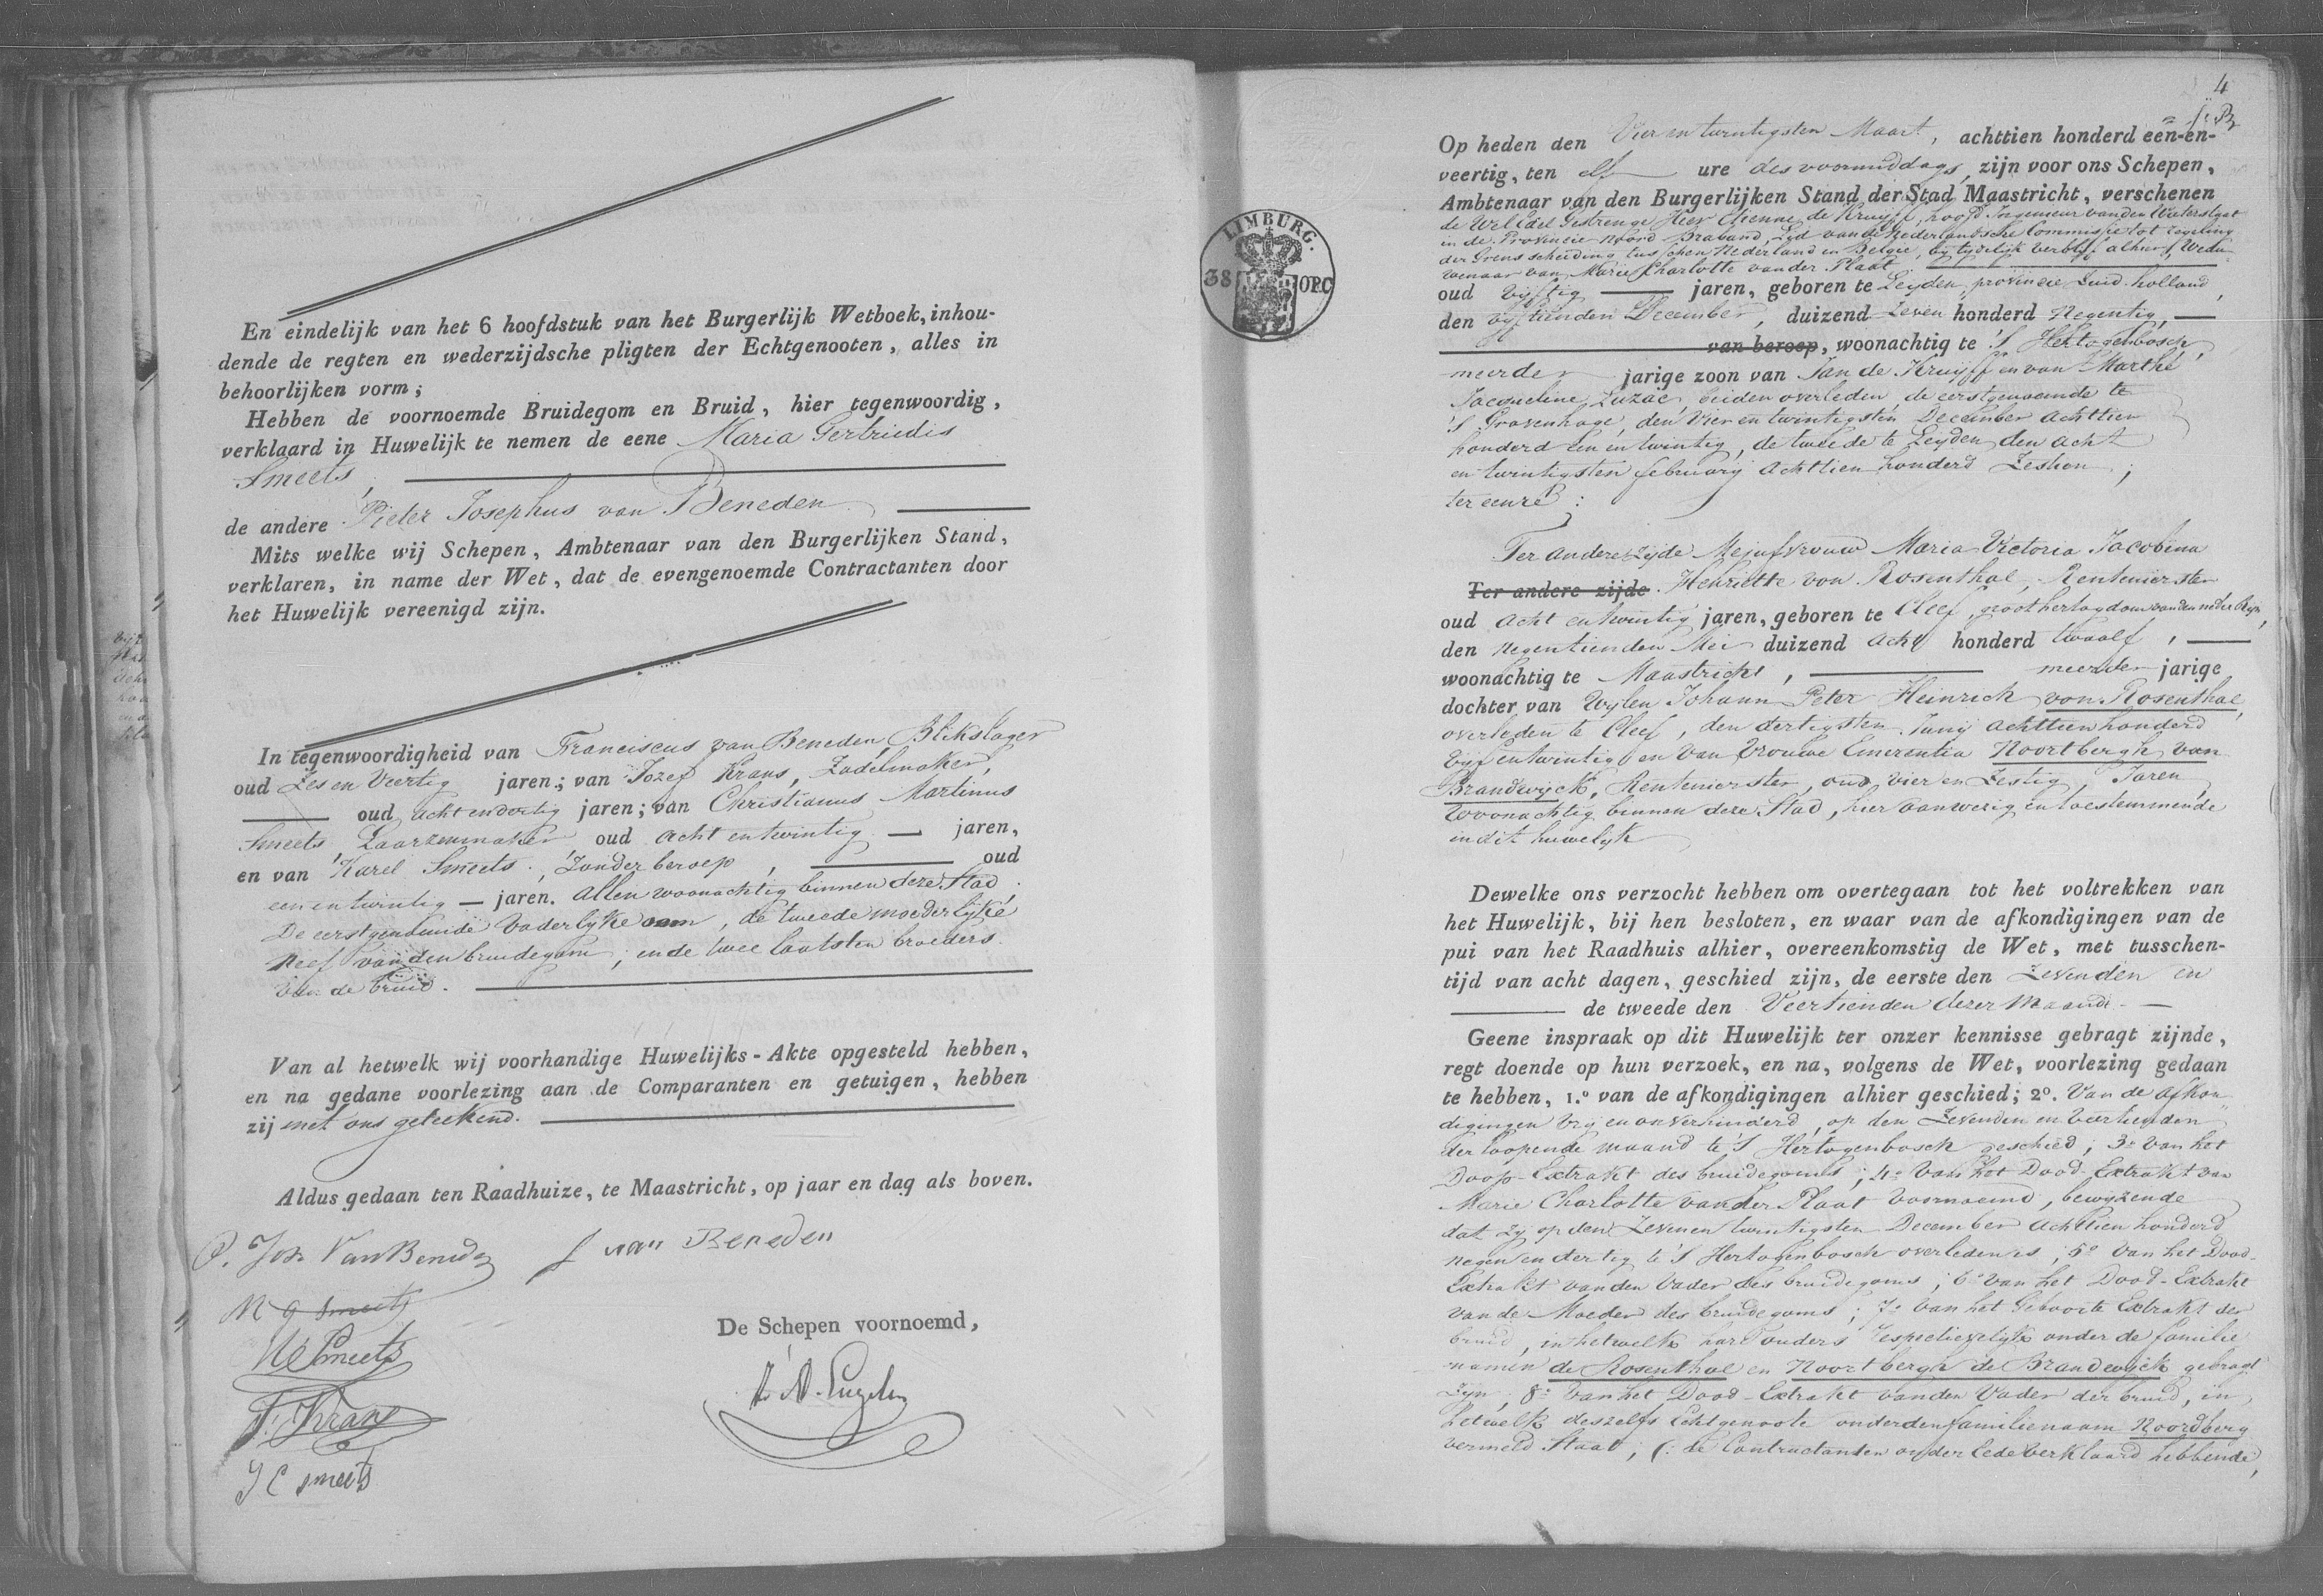 En eindelijk van het 6 hoofdstuk van het Burgerlijk Wetboek, inhou-
dende de regten en wederzijdsche pligten der Echtgenooten, alles in
behoorlijken vorm;
Hebben de voornoemde Bruidegom en Bruid, hier tegenwoordig,
verklaard in Huwelijk te nemen de eene Maria Gertriedis
Smeets,
de andere Pieter Josephus van Beneden
Mits welke wij Schepen, Ambtenaar van den Burgerlijken Stand,
verklaren, in name der Wet, dat de evengenoemde Contractanten door
het Huwelijk vereenigd zijn.
In tegenwoordigheid van Franciscus van Beneden, Blikslager
oud Zes en Veertig jaren; van Jozef Krans, Zadelmaker,
oud acht en dertig jaren; van Christianus Martinus
Smeets, Laarzenmaker, oud acht en twintig jaren,
en van Karel Smeets, Zonder beroep, oud
een en twintig jaren. Allen woonachtig binnen deze Stad.
De eerstgenoemde Vaderlijke oom, de tweede moederlijke
Neef van den bruidegom, en de twee laatsten broeders
van de bruid.
Van al hetwelk wij voorhandige Huwelijks-Akte opgesteld hebben,
en na gedane voorlezing aan de Comparanten en getuigen, hebben
zij met ons geteekend.
Aldus gedaan ten Raadhuize, te Maastricht, op jaar en dag als boven.
P. Jos. Van Beneden f van Beneden
M G Smeets
De Schepen voornoemd,
Smeets
J. Krans
J C Smeets
4
LIMBURG.
38 OPC
Op heden den Vier en twintigsten Maart, achttien honderd een-en-
veertig, ten elf ure des voormiddags, zijn voor ons Schepen,
Ambtenaar van den Burgerlijken Stand der Stad Maastricht, verschenen
de Wel Edel Gestrenge Heer Etienne de Kruyff, hoofd Ingenieur van den Waterstaat
in de Provincie Noord Braband, Lid van de Nederlandsche Commissie tot regeling
der Grens scheiding tusschen Nederland en Belgie, bij tijdelijk verblijf alhier, Wedu-
wenaar van Marie Charlotte van der Plaat
oud Vijftig jaren, geboren te Leyden, provincie Zuid-holland,
den vijftienden December, duizend Zeven honderd Negentig,
van beroep, woonachtig te 'S Hertogenbosch,
meerder jarige zoon van Jan de Kruyff en van Marthe
Jacqueline Luzac, beiden overleden, de eerstgenoemde te
'S Gravenhage, den Vier en twintigsten December achttien
honderd een en twintig, de tweede te Leyden den acht
en twintigsten february achttien honderd Zestien;
ter eenre:
Ter andere zijde Mejufvrouw Maria Victoria Jacobina
Ter andere zijde. Henriette von Rosenthal, Rentenierster
oud acht en twintig jaren, geboren te Cleef, groothertogdom van den neder Rijn,
den Negentienden Mei duizend acht honderd twaalf,
woonachtig te Maastricht, meerder jarige
dochter van Wijlen Johann Peter Heinrich von Rosenthal,
overleden te Cleef, den dertigsten Junij achttien honderd
vijf en twintig en van Vrouwe Emerentia Noortbergh van
Brandwijck, Rentenierster, oud vier en Zestig Jaren,
Woonachtig binnen deze Stad, hier aanwezig en toestemmende
in dit huwelijk
Dewelke ons verzocht hebben om overtegaan tot het voltrekken van
het Huwelijk, bij hen besloten, en waar van de afkondigingen van de
pui van het Raadhuis alhier, overeenkomstig de Wet, met tusschen-
tijd van acht dagen, geschied zijn, de eerste den Zevenden en
de tweede den Veertienden dezer Maand
Geene inspraak op dit Huwelijk ter onzer kennisse gebragt zijnde,
regt doende op hun verzoek, en na, volgens de Wet, voorlezing gedaan
te hebben, 1.º van de afkondigingen alhier geschied; 2º. Van de afkon-
digingen vrij en onverhinderd, op den Zevenden en Veertienden
der loopende maand te 'S Hertogenbosch geschied; 3º van het
Doop-Extrakt des bruidegoms; 4º van het Dood-Extrakt van
Marie Charlotte van der Plaat voornoemd, bewijzende
dat zij op den Zeven en twintigsten December achttien honderd
negen en dertig te 'S Hertogenbosch overleden is; 5º van het Dood-
Extrakt van den Vader des bruidegoms; 6º van het Dood-Extrakt
van de Moeder des bruidegoms; 7º van het Geboorte Extrakt der
bruid, in hetwelk hare ouders respectievelijk onder de familie
namen de Rosenthal en Noortbergh de Brandwijck gebragt
zijn; 8º van het Dood-Extrakt van den Vader der bruid, in
hetwelk deszelfs Echtgenoote onder den familienaam Noordberg
vermeld Staat; (: de Contractanten onder Eede verklaard hebbende,